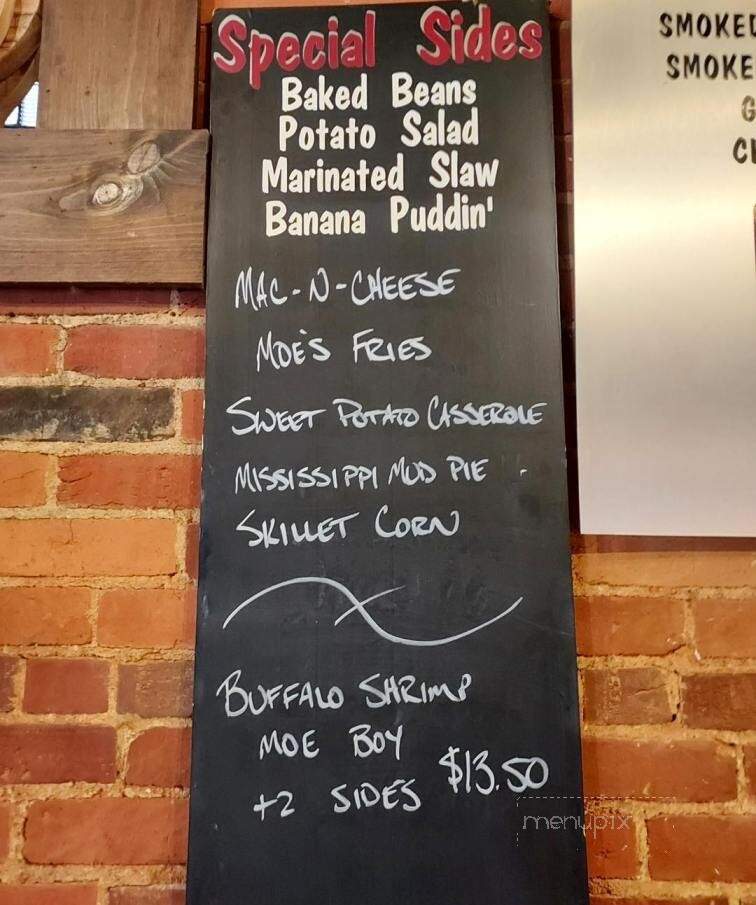 Special Sides
Baked Beans
Potato Salad
Marinated Slaw
Banana Puddin'
MAC-N-CHEESE
MOE'S FRIES
SWEET POTATO CASSEROLE
MISSISSIPPI MUD PIE
SKILLET CORN
BUFFALO SHRIMP
MOE BOY
+2 SIDES $13.50
menupix
SMOKED
SMOKE
G